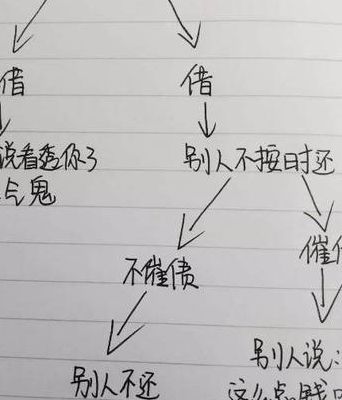 借
借
说看透你了
气鬼
别人不按时还
催债
不催债
别人说:
别人不还
这么点钱